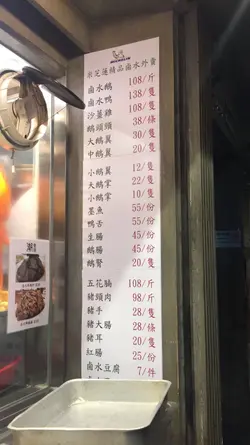 米芝蓮精品鹵水外賣
鹵水鵝 108/斤
鹵水鴨 138/隻
沙薑雞 108/隻
鵝頭頸 38/條
大鵝翼 30/隻
中鵝翼 20/隻
小鵝翼 12/隻
大鵝掌 22/隻
小鵝掌 10/隻
墨魚 55/份
鴨舌 55/份
生腸 45/份
鵝腸 45/份
鵝腎 20/隻
五花腩 108/斤
豬頭肉 98/斤
豬手 28/隻
豬大腸 28/條
豬耳 20/隻
紅腸 25/份
鹵水豆腐 7/件
潮